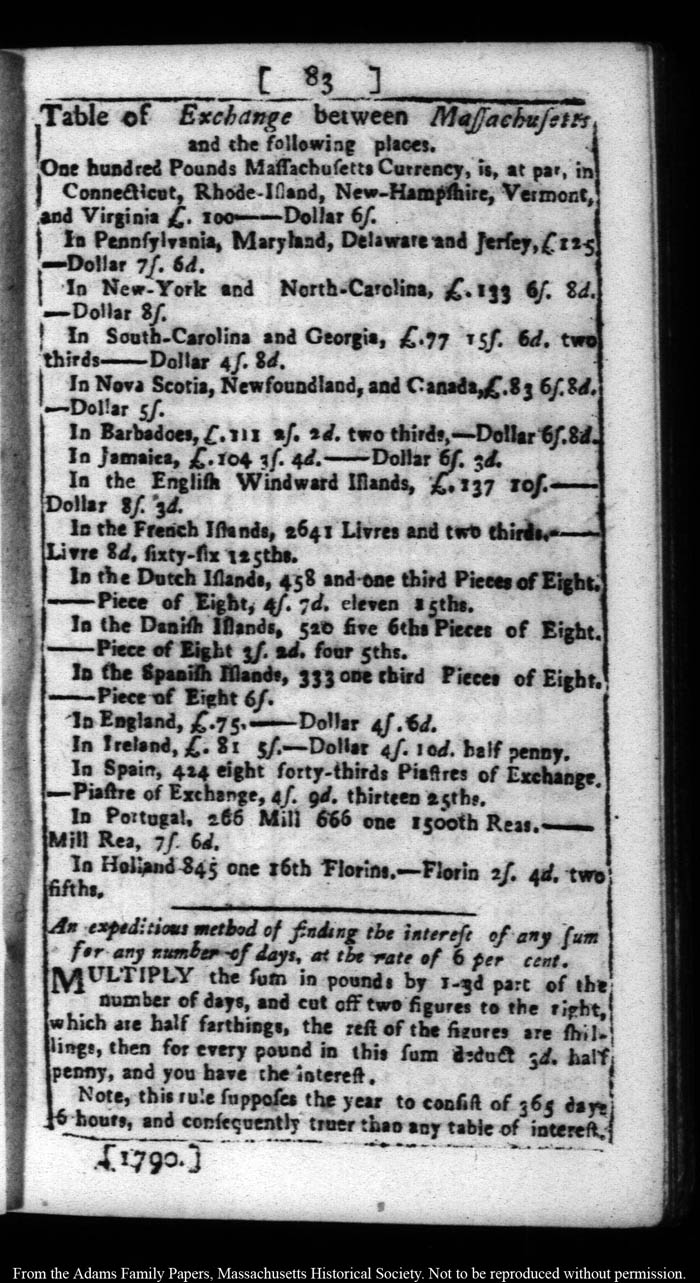 [ 83 ]
Table of Exchange between Maſſachuſetts
and the following places.
One hundred Pounds Maſſachuſetts Currency, is, at par, in
Connecticut, Rhode-Iſland, New-Hampſhire, Vermont,
and Virginia £. 100——Dollar 6ſ.
In Pennſylvania, Maryland, Delaware and Jerſey, £125
—Dollar 7ſ. 6d.
In New-York and North-Carolina, £.133 6ſ. 8d.
—Dollar 8ſ.
In South-Carolina and Georgia, £.77 15ſ. 6d. two
thirds——Dollar 4ſ. 8d.
In Nova Scotia, Newfoundland, and Canada, £.83 6ſ.8d.
—Dollar 5ſ.
In Barbadoes, £.111 2ſ. 2d. two thirds,—Dollar 6ſ.8d.
In Jamaica, £.104 3ſ. 4d.——Dollar 6ſ. 3d.
In the Engliſh Windward Iſlands, £.137 10ſ.——
Dollar 8ſ. 3d.
In the French Iſlands, 2641 Livres and two thirds.——
Livre 8d. ſixty-ſix 125ths.
In the Dutch Iſlands, 458 and one third Pieces of Eight.
——Piece of Eight, 4ſ. 7d. eleven 15ths.
In the Daniſh Iſlands, 520 five 6ths Pieces of Eight.
——Piece of Eight 3ſ. 2d. four 5ths.
In the Spaniſh Iſlands, 333 one third Pieces of Eight.
——Piece of Eight 6ſ.
In England, £.75.——Dollar 4ſ.6d.
In Ireland, £. 81 5ſ.—Dollar 4ſ. 10d. half penny.
In Spain, 424 eight forty-thirds Piaſtres of Exchange.
—Piaſtre of Exchange, 4ſ. 9d. thirteen 25ths.
In Portugal, 266 Mill 666 one 1500th Reas.——
Mill Rea, 7ſ. 6d.
In Holland 845 one 16th Florins.—Florin 2ſ. 4d. two
fifths.
An expeditious method of finding the intereſt of any ſum
for any number of days, at the rate of 6 per cent.
MULTIPLY the ſum in pounds by 1-3d part of the
number of days, and cut off two figures to the right,
which are half farthings, the reſt of the figures are ſhil-
lings, then for every pound in this ſum deduct 3d. half
penny, and you have the intereſt.
Note, this rule ſuppoſes the year to conſiſt of 365 days
6 hours, and conſequently truer than any table of intereſt.
[1790.]
From the Adams Family Papers, Massachusetts Historical Society. Not to be reproduced without permission.